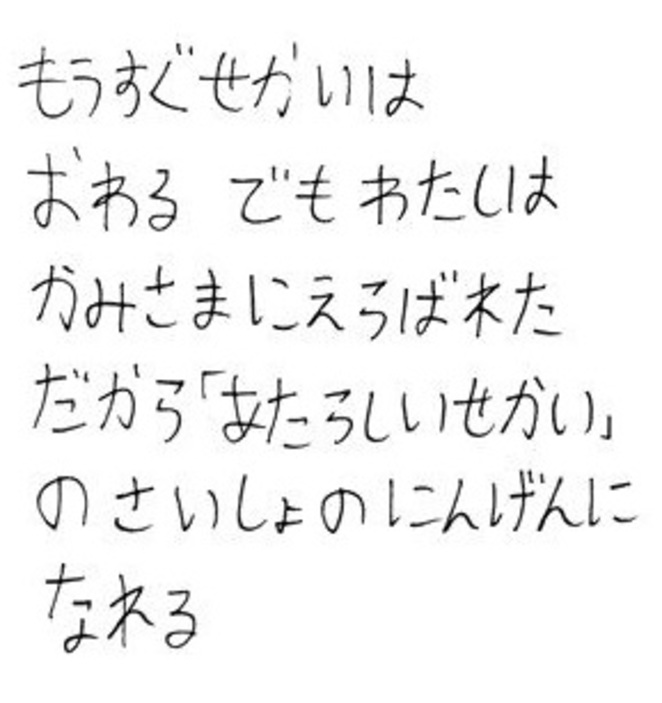 もうすぐせかいは
おわる でもわたしは
かみさまにえらばれた
だから「あたらしいせかい」
のさいしょのにんげんに
なれる